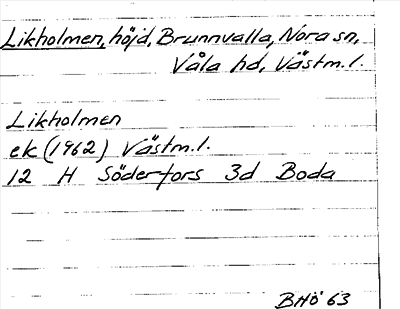 Likholmen, höjd, Brunnvalla, Nora sn,
Våla hd, Västm.l.
Likholmen
ek (1962) Västm.l.
12 H Söderfors 3d Boda
BHö 63